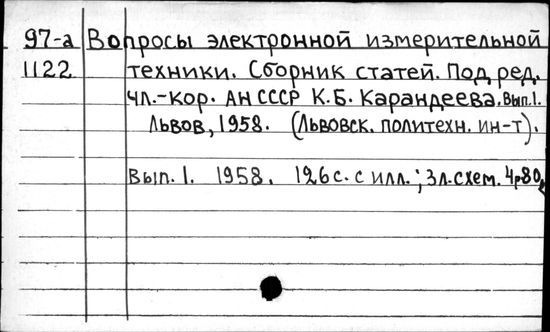 97-а Вопросы электронной измерительной
1122 техники. Сборник статей. Под ред.
чл.-кор. АН СССР К.Б. Карандеева. Вып.1.
Львов, 1958. (Львовск. политехн. ин-т).
Вып. 1. 1958. 126 с. с илл.; 3 л. схем. 4р80